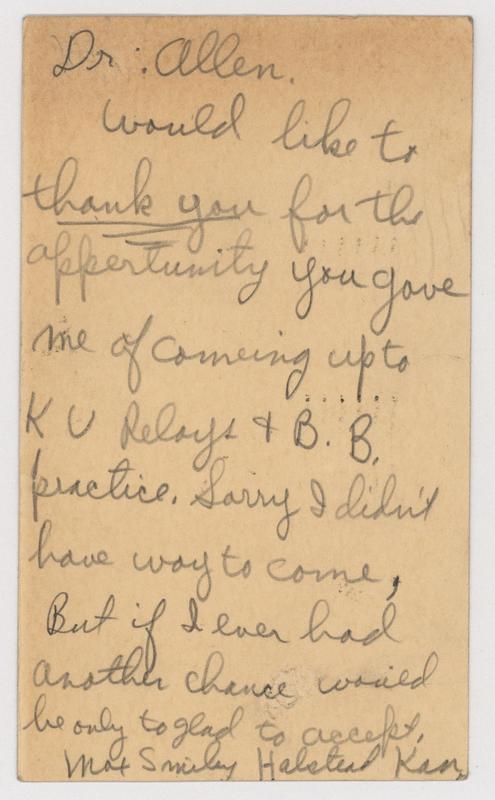 Dr: Allen.
would like to
thank you for the
appertunity you gave
me of comeing up to
K U Relays + B. B.
practice. Sorry I didn't
have way to come,
But if I ever had
another chance would
be only to glad to accept.
Max Smiley Halstead Kan.